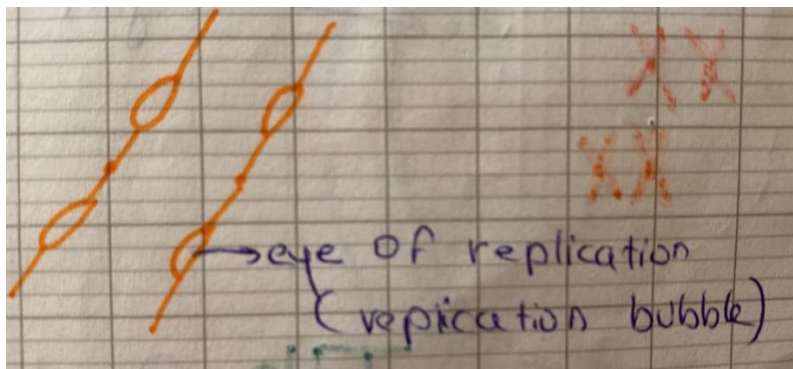 eye of replication
(replication bubble)